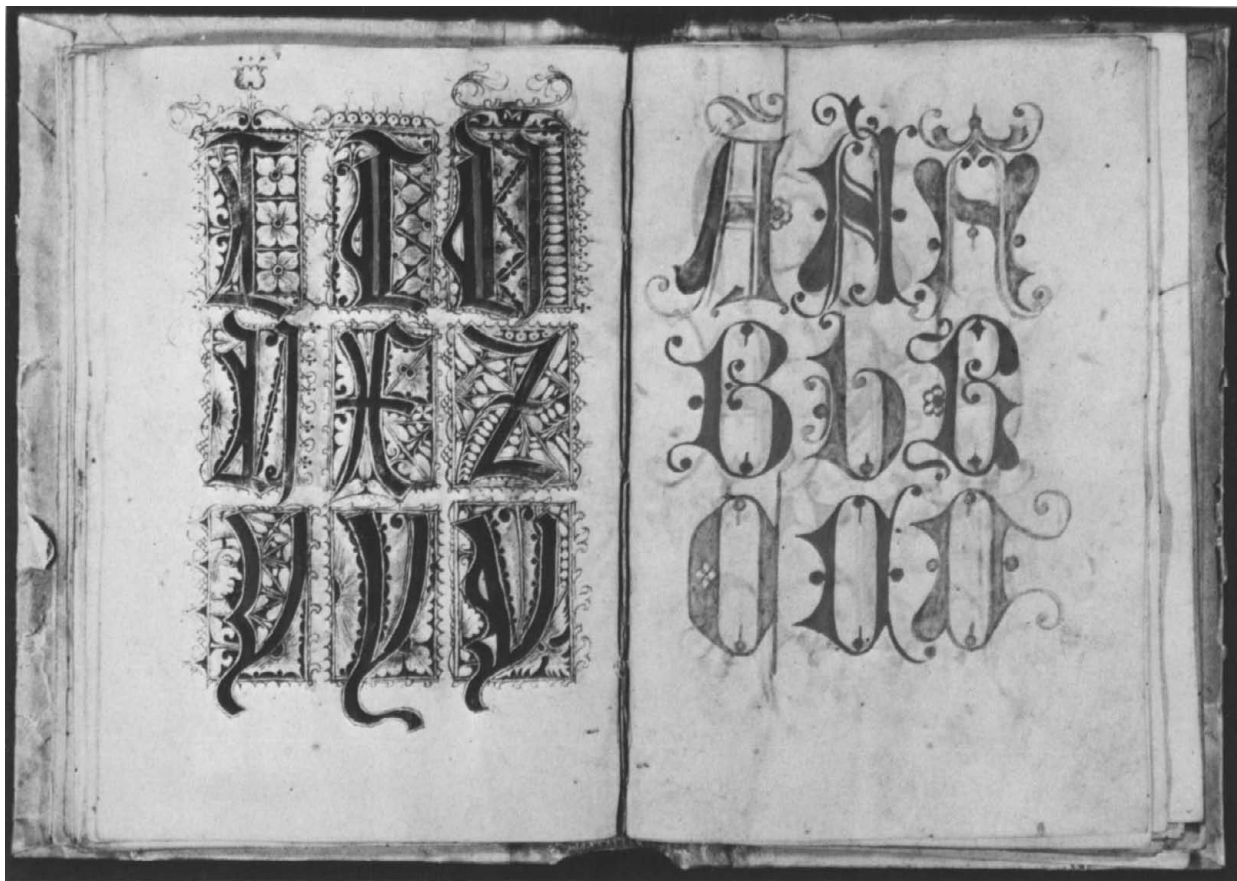 T T U
V X Z
Y Y Y
A A A
B B B
C C C